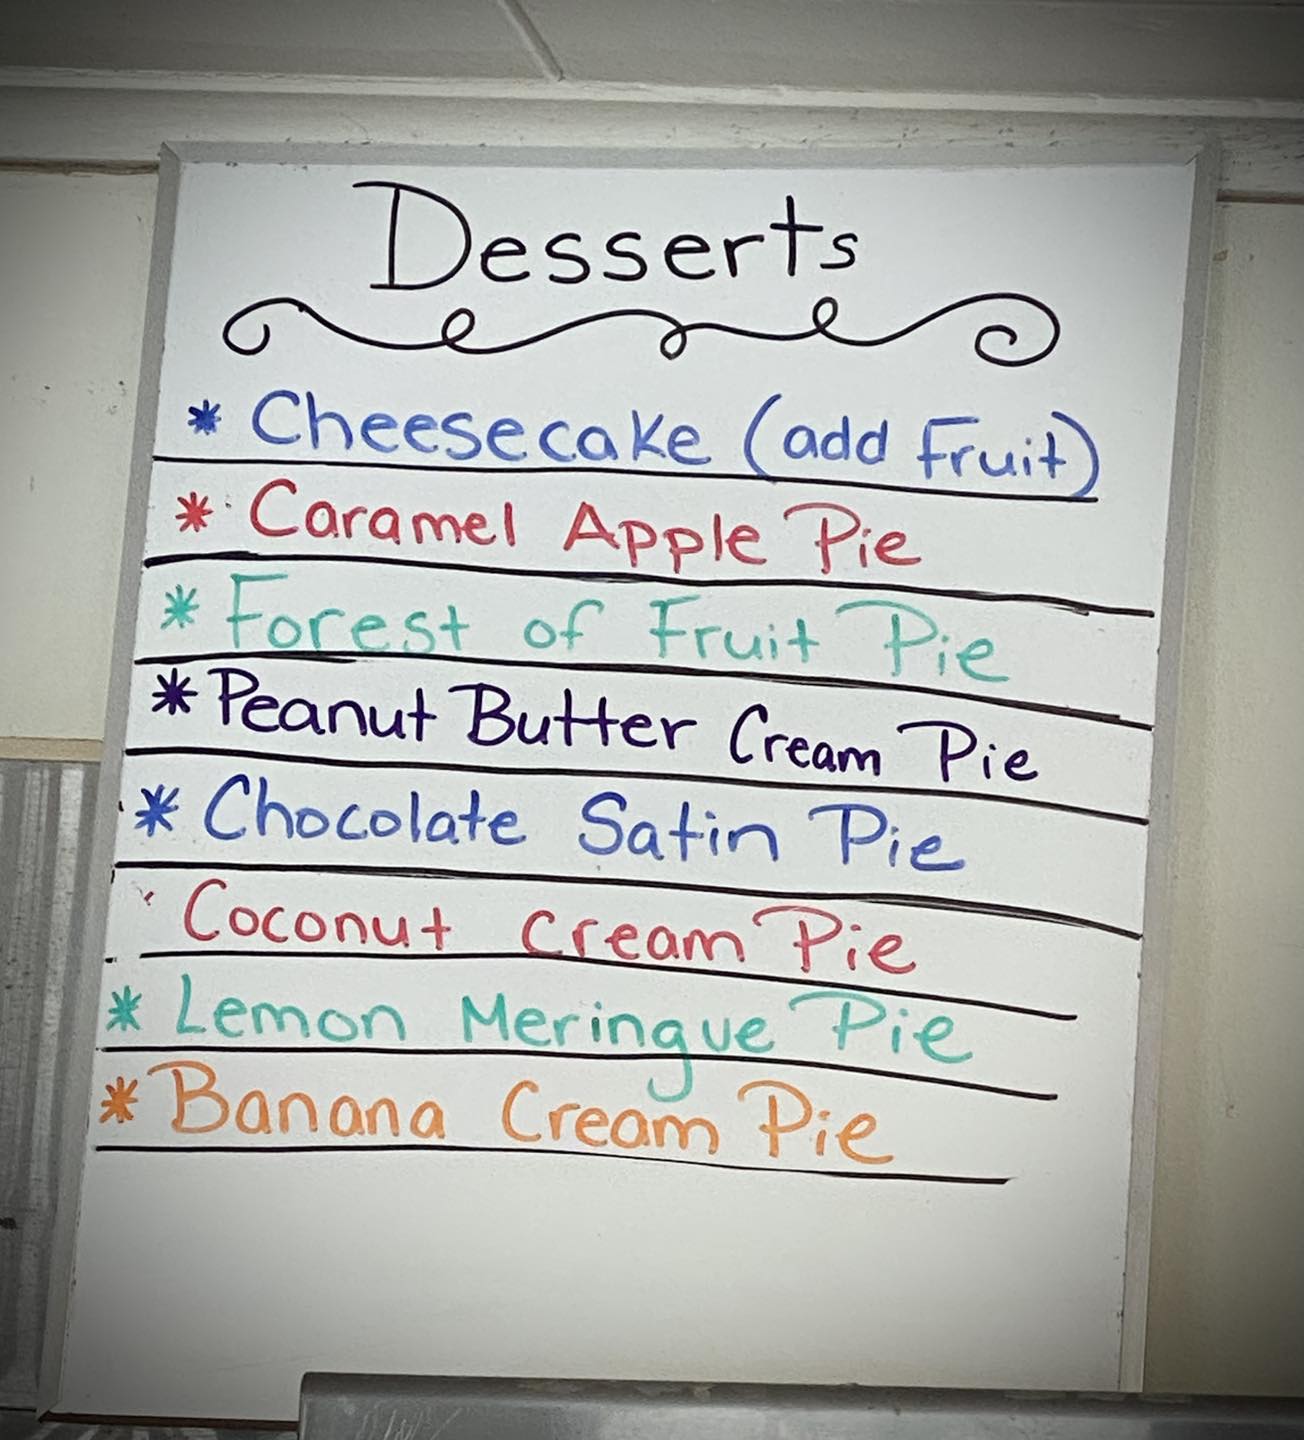 Desserts
* Cheesecake (add Fruit)
* Caramel Apple Pie
* Forest of Fruit Pie
* Peanut Butter Cream Pie
* Chocolate Satin Pie
Coconut Cream Pie
* Lemon Meringue Pie
* Banana Cream Pie